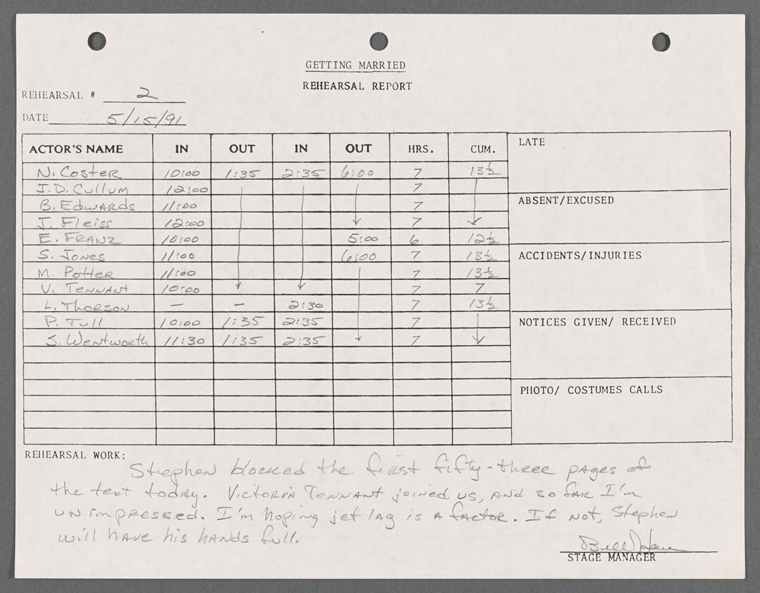 GETTING MARRIED
REHEARSAL REPORT
REHEARSAL # 2
DATE 5/15/91
ACTOR'S NAME IN OUT IN OUT HRS. CUM.
N. Coster 10:00 1:35 2:35 6:00 7 13½
J.D. Cullum 12:00 7
B. Edwards 11:00 7
J. Fleiss 12:00 7
E. Franz 10:00 5:00 6 12½
S. Jones 11:00 6:00 7 13½
M. Potter 11:00 7 13½
V. Tennant 10:00 7 7
L. Thorson — — 2:30 7 13½
P. Tull 10:00 1:35 2:35 7
S. Wentworth 11:30 1:35 2:35 7
LATE
ABSENT/EXCUSED
ACCIDENTS/INJURIES
NOTICES GIVEN/ RECEIVED
PHOTO/ COSTUMES CALLS
REHEARSAL WORK:
Stephen blocked the first fifty-three pages of
the text today. Victoria Tennant joined us, and so far I'm
unimpressed. I'm hoping jet lag is a factor. If not, Stephen
will have his hands full.
STAGE MANAGER